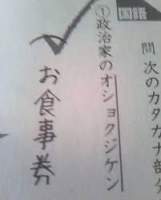 問 次のカタカナ部分
①政治家のオショクジケン
お食事券